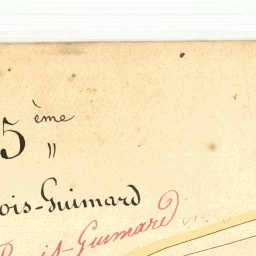 5 ème
„
ois-Guimard
Bois-Guimard